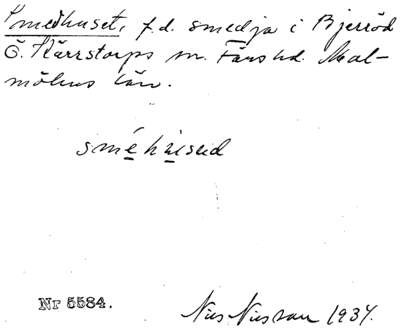 Smedhuset, f.d. smedja i Bjerröd
Ö. Kärrstorps sn. Färs hd. Mal-
möhus län.
sméhúseid
Nr 5584.
Nils Nilsson 1934.